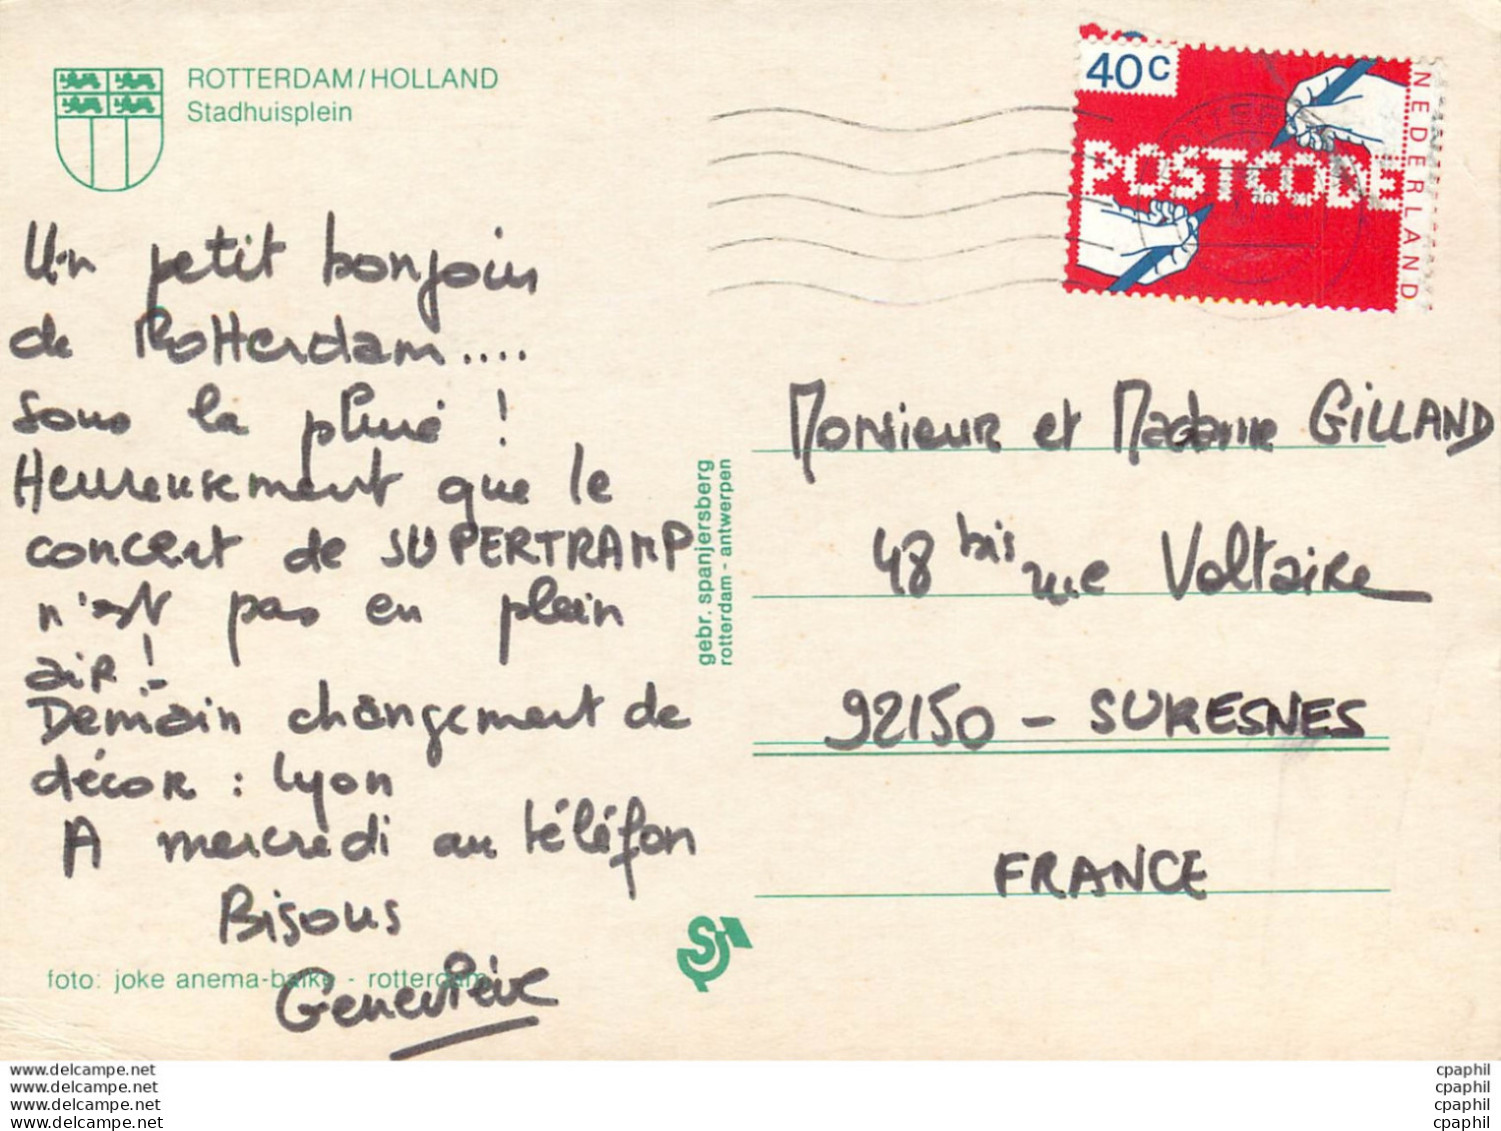 ROTTERDAM/HOLLAND
Stadhuisplein
40c
POSTCODE
NEDERLAND
Un petit bonjour
de Rotterdam....
sous la pluie !
Heureusement que le
concert de SUPERTRAMP
n'est pas en plein
air !
Demain changement de
décor : Lyon
A mercredi au téléfon
Bisous
Geneviève
foto: joke anema-balke - rotterdam
gebr. spanjersberg
rotterdam - antwerpen
Monsieur et Madame GILLAND
48 bis rue Voltaire
92150 - SURESNES
FRANCE
www.delcampe.net
www.delcampe.net
www.delcampe.net
www.delcampe.net
cpaphil
cpaphil
cpaphil
cpaphil